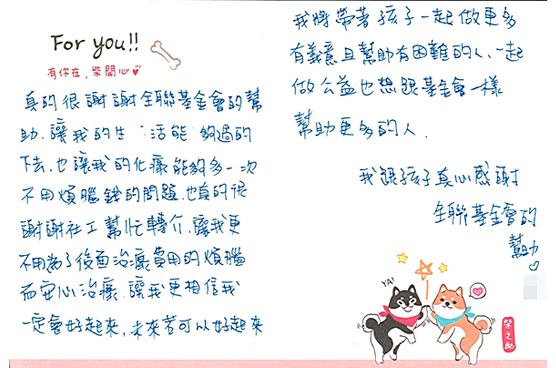 For you!!
有你在,柴開心
真的很謝謝全聯基金會的幫
助,讓我的生活能夠過的
下去,也讓我的化療能夠多一次
不用煩腦錢的問題,也真的很
謝謝社工幫忙轉介,讓我更
不用為了後面治療費用的煩腦
而安心治療,讓我更相信我
一定會好起來,未來若可以好起來
我將帶著孩子一起做更多
有義意且幫助有困難的人,一起
做公益也想跟基金會一樣
幫助更多的人.
我跟孩子真心感謝
全聯基金會的
幫助
YA!
柴之助